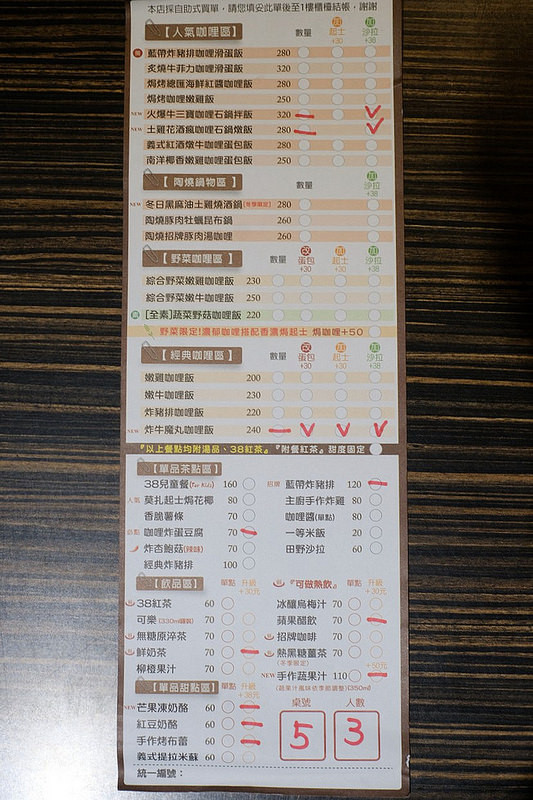 本店採自助式買單，請您填妥此單後至1樓櫃檯結帳，謝謝
【人氣咖哩區】 數量 加 起士 +30 加 沙拉 +38
藍帶炸豬排咖哩滑蛋飯 280
炙燒牛菲力咖哩滑蛋飯 320
焗烤總匯海鮮紅醬咖哩飯 280
焗烤咖哩嫩雞飯 250
NEW 火爆牛三寶咖哩石鍋拌飯 320
NEW 土雞花酒瘋咖哩石鍋燉飯 280
義式紅酒燉牛咖哩蛋包飯 280
南洋椰香嫩雞咖哩蛋包飯 250
【陶燒鍋物區】 數量 加 沙拉 +38
NEW 冬日黑麻油土雞燒酒鍋(冬季限定) 280
陶燒豚肉牡蠣昆布鍋 260
陶燒招牌豚肉湯咖哩 260
【野菜咖哩區】 數量 改 蛋包 +30 加 起士 +30 加 沙拉 +38
綜合野菜嫩雞咖哩飯 230
綜合野菜嫩牛咖哩飯 250
[全素]蔬菜野菇咖哩飯 220
野菜限定!濃郁咖哩搭配香濃焗起士 焗咖哩+50
【經典咖哩區】 數量 改 蛋包 +30 加 起士 +30 加 沙拉 +38
嫩雞咖哩飯 200
嫩牛咖哩飯 220
炸豬排咖哩飯 220
NEW 炸牛魔丸咖哩飯 240
『以上餐點均附湯品、38紅茶』『附餐紅茶』甜度固定
【單品茶點區】
38兒童餐(For Kids) 160
人氣 莫扎起士焗花椰 80
香脆薯條 70
必點 咖哩炸蛋豆腐 70
炸杏鮑菇(辣味) 70
經典炸豬排 100
招牌 藍帶炸豬排 120
主廚手作炸雞 80
咖哩醬(單點) 80
一等米飯 20
田野沙拉 60
【飲品區】 單點 升級 +30元
38紅茶 60
可樂(330ml鋁罐) 70
無糖原淬茶 70
鮮奶茶 70
柳橙果汁 70
『可做熱飲』 單點 升級 +30元
冰釀烏梅汁 70
蘋果醋飲 70
招牌咖啡 70
熱黑糖薑茶 70
(冬季限定)
+60元
NEW 手作蔬果汁 110
(蔬果汁風味依季節調整)(350ml)
【單品甜點區】 單點 升級 +38元
NEW 芒果凍奶酪 60
紅豆奶酪 60
手作烤布蕾 60
義式提拉米蘇 60
桌號 人數
5 3
統一編號：